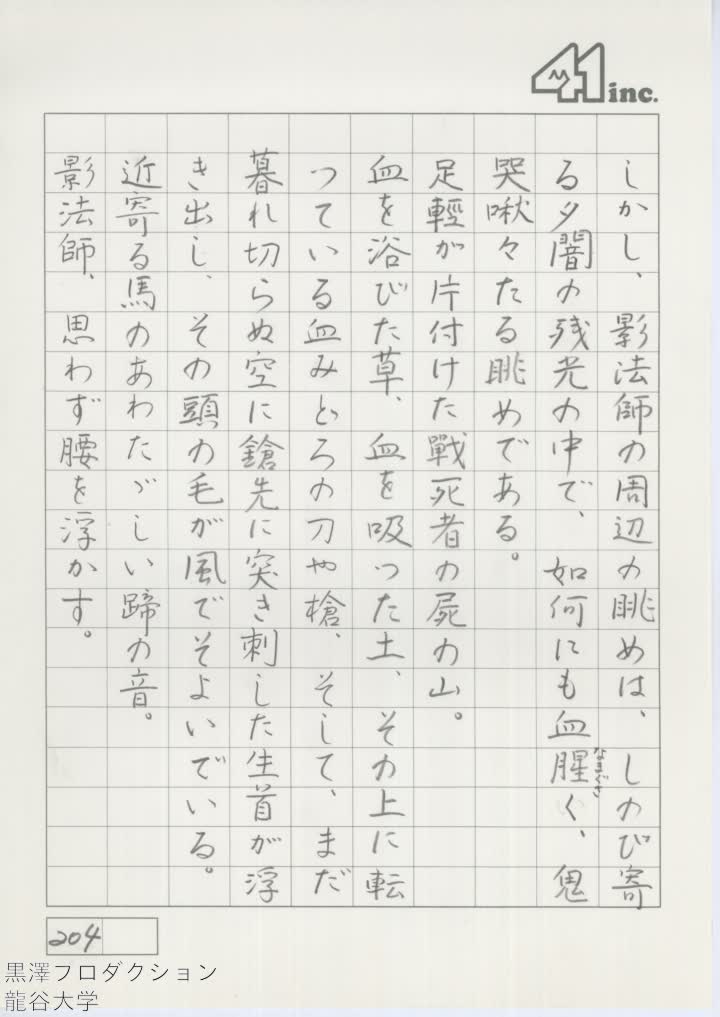 41 inc.
しかし、影法師の周辺の眺めは、しのび寄
る夕闇の残光の中で、如何にも血腥く、鬼
なまぐさ
哭啾々たる眺めである。
足輕が片付けた戰死者の屍の山。
血を浴びた草、血を吸った土、その上に転
っている血みどろの刀や槍、そして、まだ
暮れ切らぬ空に鎗先に突き刺した生首が浮
き出し、その頭の毛が風でそよいでいる。
近寄る馬のあわたゞしい蹄の音。
影法師、思わず腰を浮かす。
204
黒澤プロダクション
龍谷大学